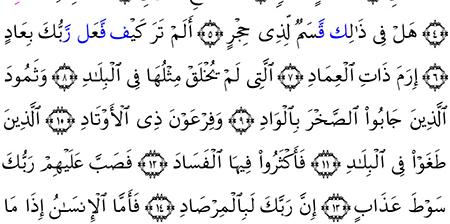 ﴿٤﴾ هَلْ فِى ذَٰلِكَ قَسَمٌ لِّذِى حِجْرٍ ﴿٥﴾ أَلَمْ تَرَ كَيْفَ فَعَلَ رَبُّكَ بِعَادٍ
﴿٦﴾ إِرَمَ ذَاتِ الْعِمَادِ ﴿٧﴾ الَّتِى لَمْ يُخْلَقْ مِثْلُهَا فِى الْبِلَـٰدِ ﴿٨﴾ وَثَمُودَ
الَّذِينَ جَابُوا۟ الصَّخْرَ بِالْوَادِ ﴿٩﴾ وَفِرْعَوْنَ ذِى الْأَوْتَادِ ﴿١٠﴾ الَّذِينَ
طَغَوْا۟ فِى الْبِلَـٰدِ ﴿١١﴾ فَأَكْثَرُوا۟ فِيهَا الْفَسَادَ ﴿١٢﴾ فَصَبَّ عَلَيْهِمْ رَبُّكَ
سَوْطَ عَذَابٍ ﴿١٣﴾ إِنَّ رَبَّكَ لَبِالْمِرْصَادِ ﴿١٤﴾ فَأَمَّا الْإِنسَـٰنُ إِذَا مَا